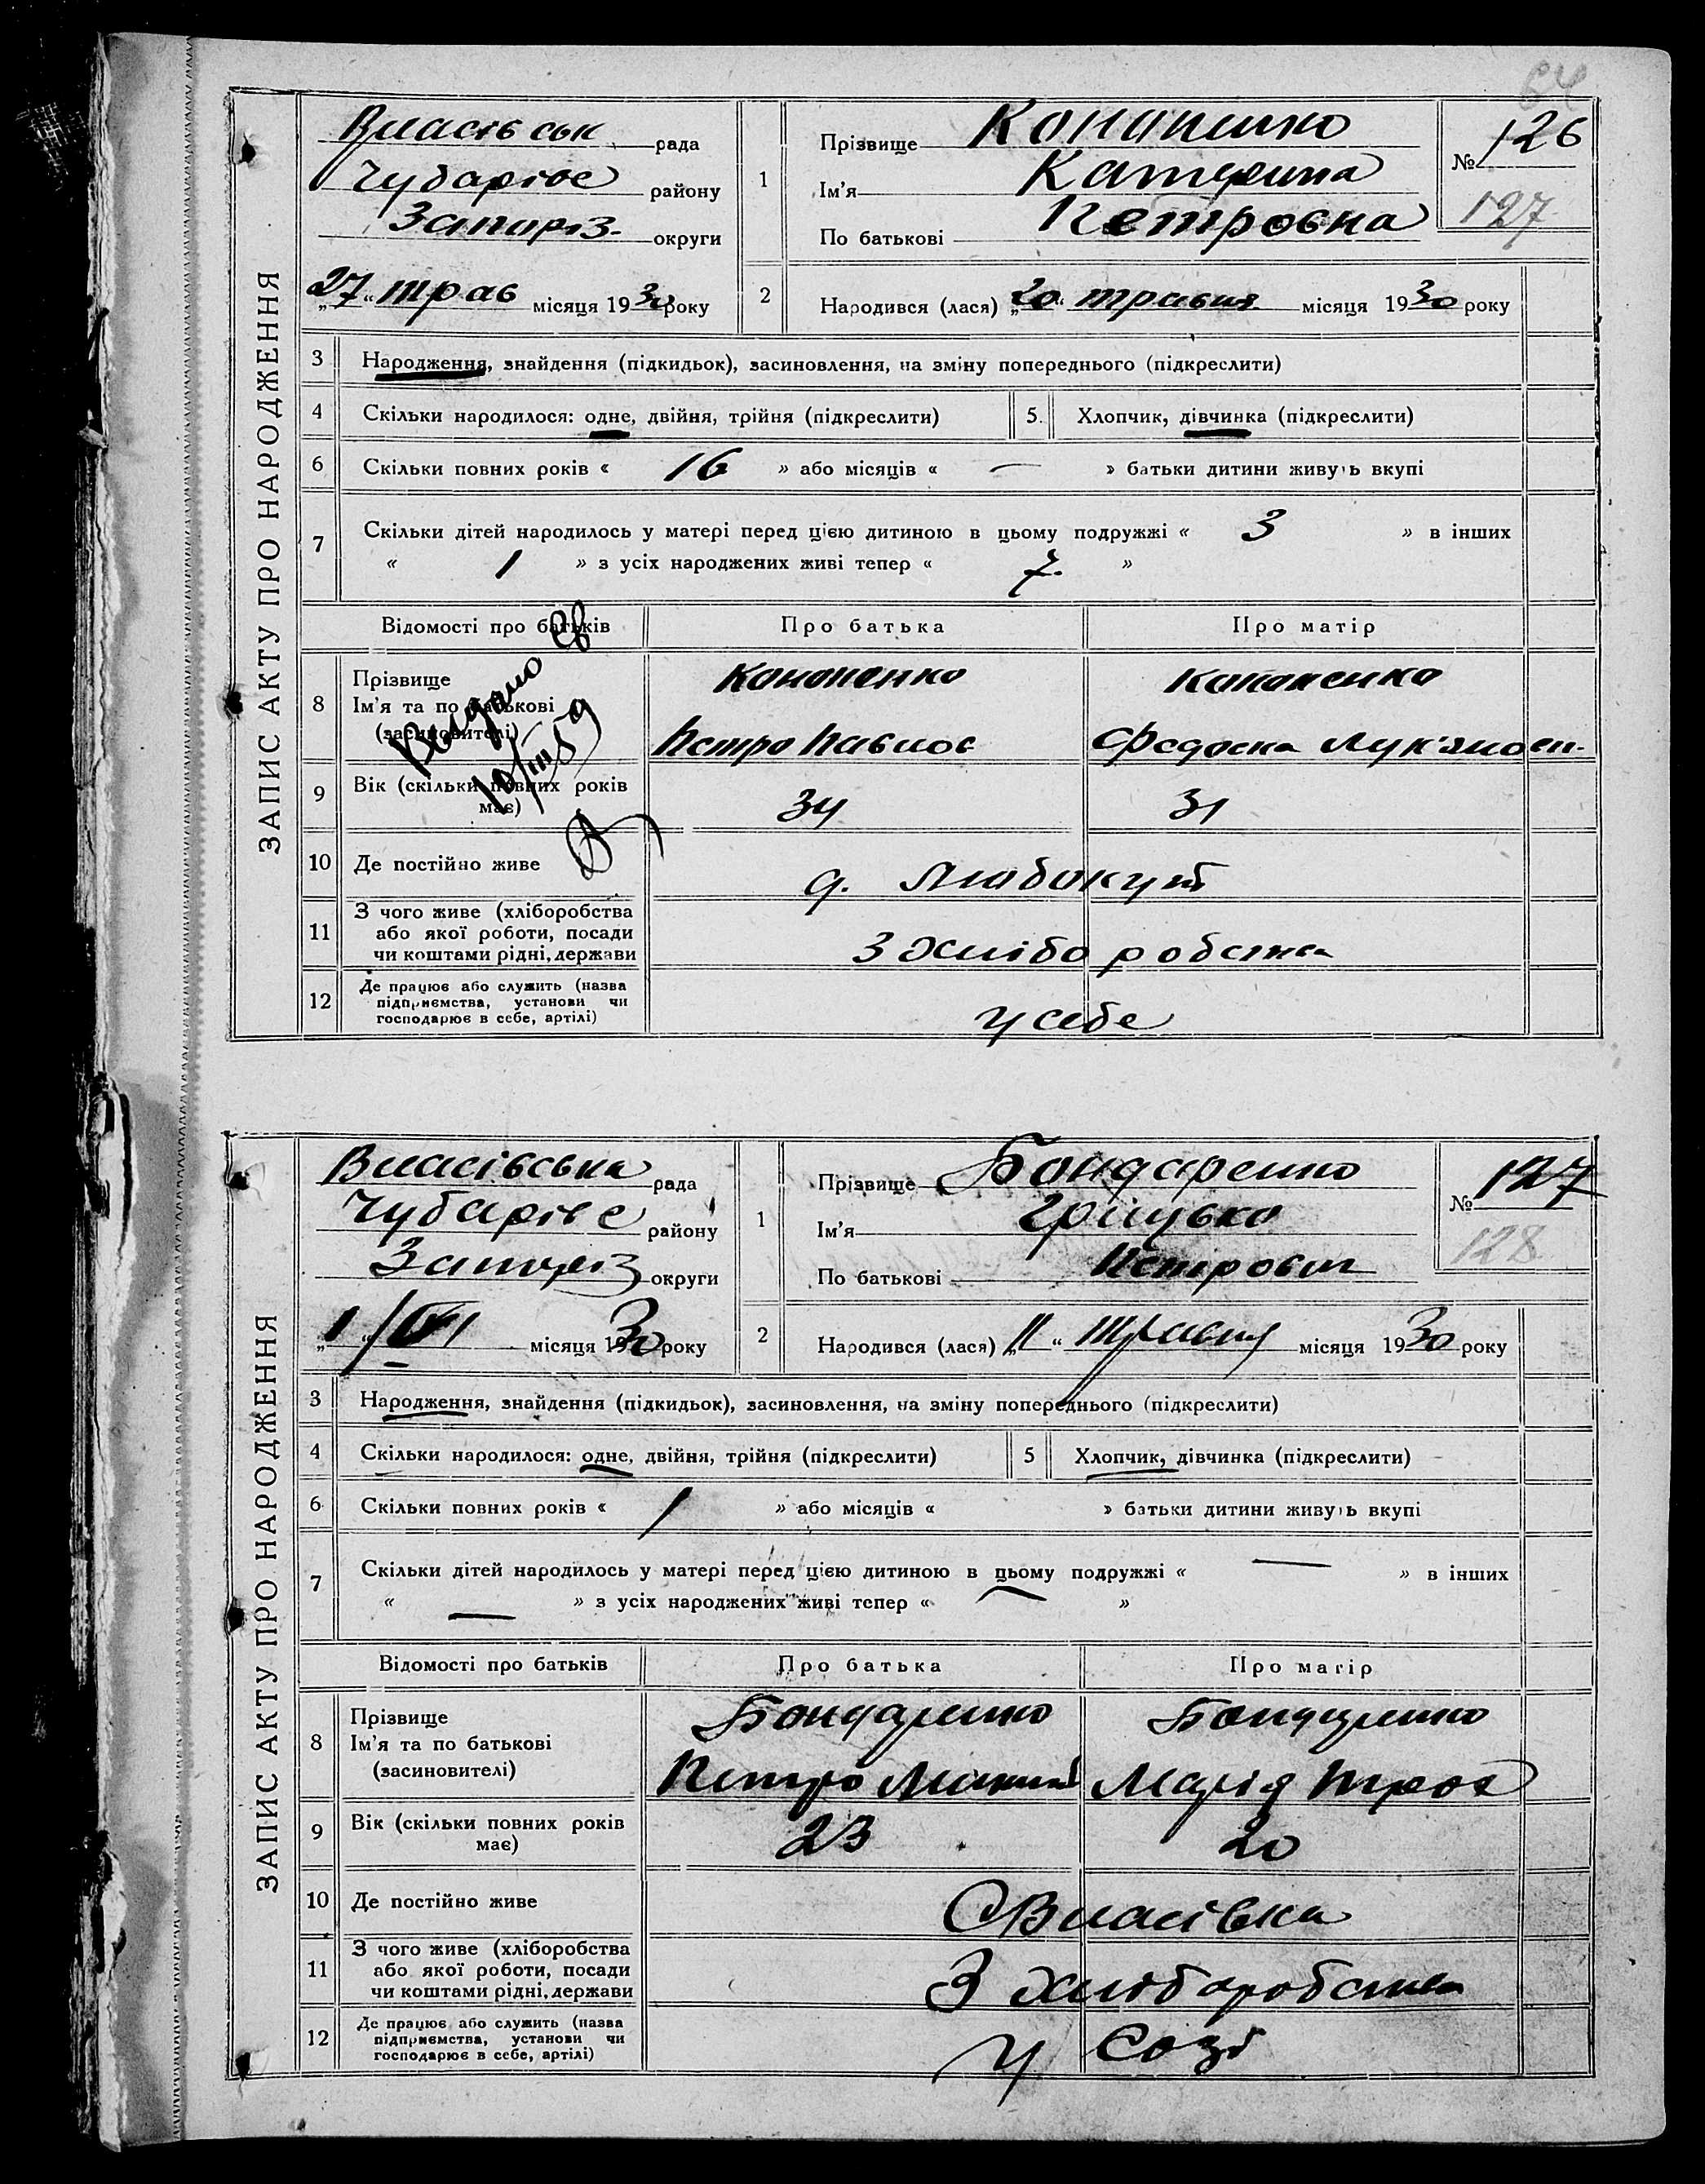 64
ЗАПИС АКТУ ПРО НАРОДЖЕННЯ
Власівськ рада
Чубарівс району
Запоріз. округи
„27“ трав місяця 1930 року
1 Прізвище Кононенко
Ім'я Катерина
По батькові Петровна
№ 126
127
2 Народився (лася) „20“ травня місяця 1930 року
3 Народження, знайдення (підкидьок), засиновлення, на зміну попереднього (підкреслити)
4 Скільки народилося: одне, двійня, трійня (підкреслити) 5. Хлопчик, дівчинка (підкреслити)
6 Скільки повних років « 16 » або місяців « — » батьки дитини живуть вкупі
7 Скільки дітей народилось у матері перед цією дитиною в цьому подружжі « 3 » в інших
« 1 » з усіх народжених живі тепер « 7. »
Відомості про батьків Про батька Про матір
Выдано св
10/III 59
8 Прізвище Кононенко Кононенко
Ім'я та по батькові
(засиновителі) Петро Павлов Федоска Лук'яновн.
9 Вік (скільки повних років має) 34 31
10 Де постійно живе д. Любокут
11 З чого живе (хліборобства
або якої роботи, посади
чи коштами рідні, держави З хліборобства
12 Де працює або служить (назва
підприємства, установи чи
господарює в себе, артілі) у себе
ЗАПИС АКТУ ПРО НАРОДЖЕННЯ
Власівська рада
Чубарівс району
Запоріз округи
„1“/VI місяця 1930 року
1 Прізвище Бондаренко
Ім'я Грицько
По батькові Петрович
№ 127
128
2 Народився (лася) „11“ травня місяця 1930 року
3 Народження, знайдення (підкидьок), засиновлення, на зміну попереднього (підкреслити)
4 Скільки народилося: одне, двійня, трійня (підкреслити) 5 Хлопчик, дівчинка (підкреслити)
6 Скільки повних років « 1 » або місяців « » батьки дитини живуть вкупі
7 Скільки дітей народилось у матері перед цією дитиною в цьому подружжі « — » в інших
« — » з усіх народжених живі тепер « — »
Відомості про батьків Про батька Про матір
8 Прізвище Бондаренко Бондаренко
Ім'я та по батькові
(засиновителі) Петро Марія
9 Вік (скільки повних років має) 23 20
10 Де постійно живе С Власівка
11 З чого живе (хліборобства
або якої роботи, посади
чи коштами рідні, держави З хліборобства
12 Де працює або служить (назва
підприємства, установи чи
господарює в себе, артілі) у Созі